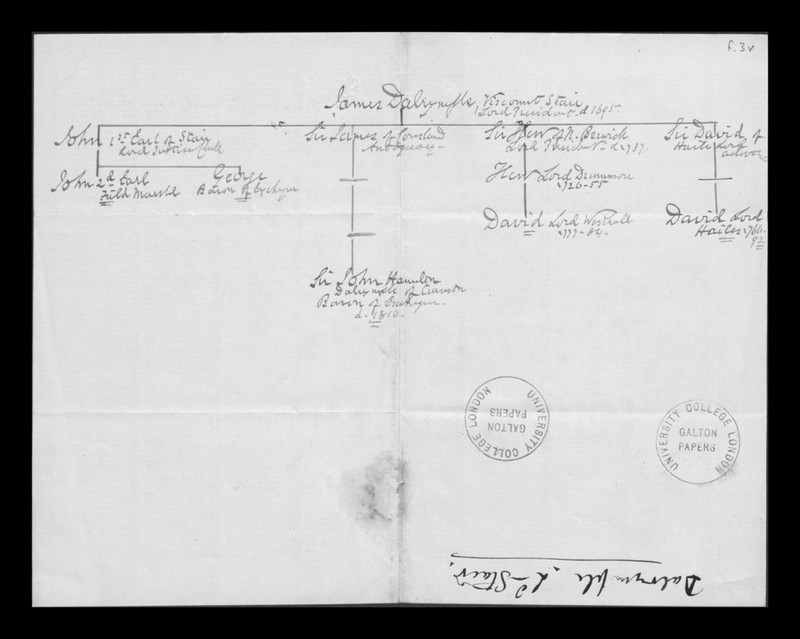 f. 3v
James Dalrymple, Viscount Stair
Lord President d 1695.
John 1st Earl of Stair
Lord Justice Clk
Sir James of
Antiquary -
Sir Hew of N. Berwick
Lord
Sir David of
Hailes Lord
John 2d Earl
Field Marshl
George
Baron of Exchequr
Hew Lord Drummore
1726-55
David Lord Westhall
1777-84-
David Lord
Hailes 1766-
92
Sir John Hamilton
Dalrymple of
Baron of Exchequr -
d. 1810-
UNIVERSITY COLLEGE LONDON
GALTON
PAPERS
UNIVERSITY COLLEGE LONDON
GALTON
PAPERS
Dalrymple, Ld Stair.